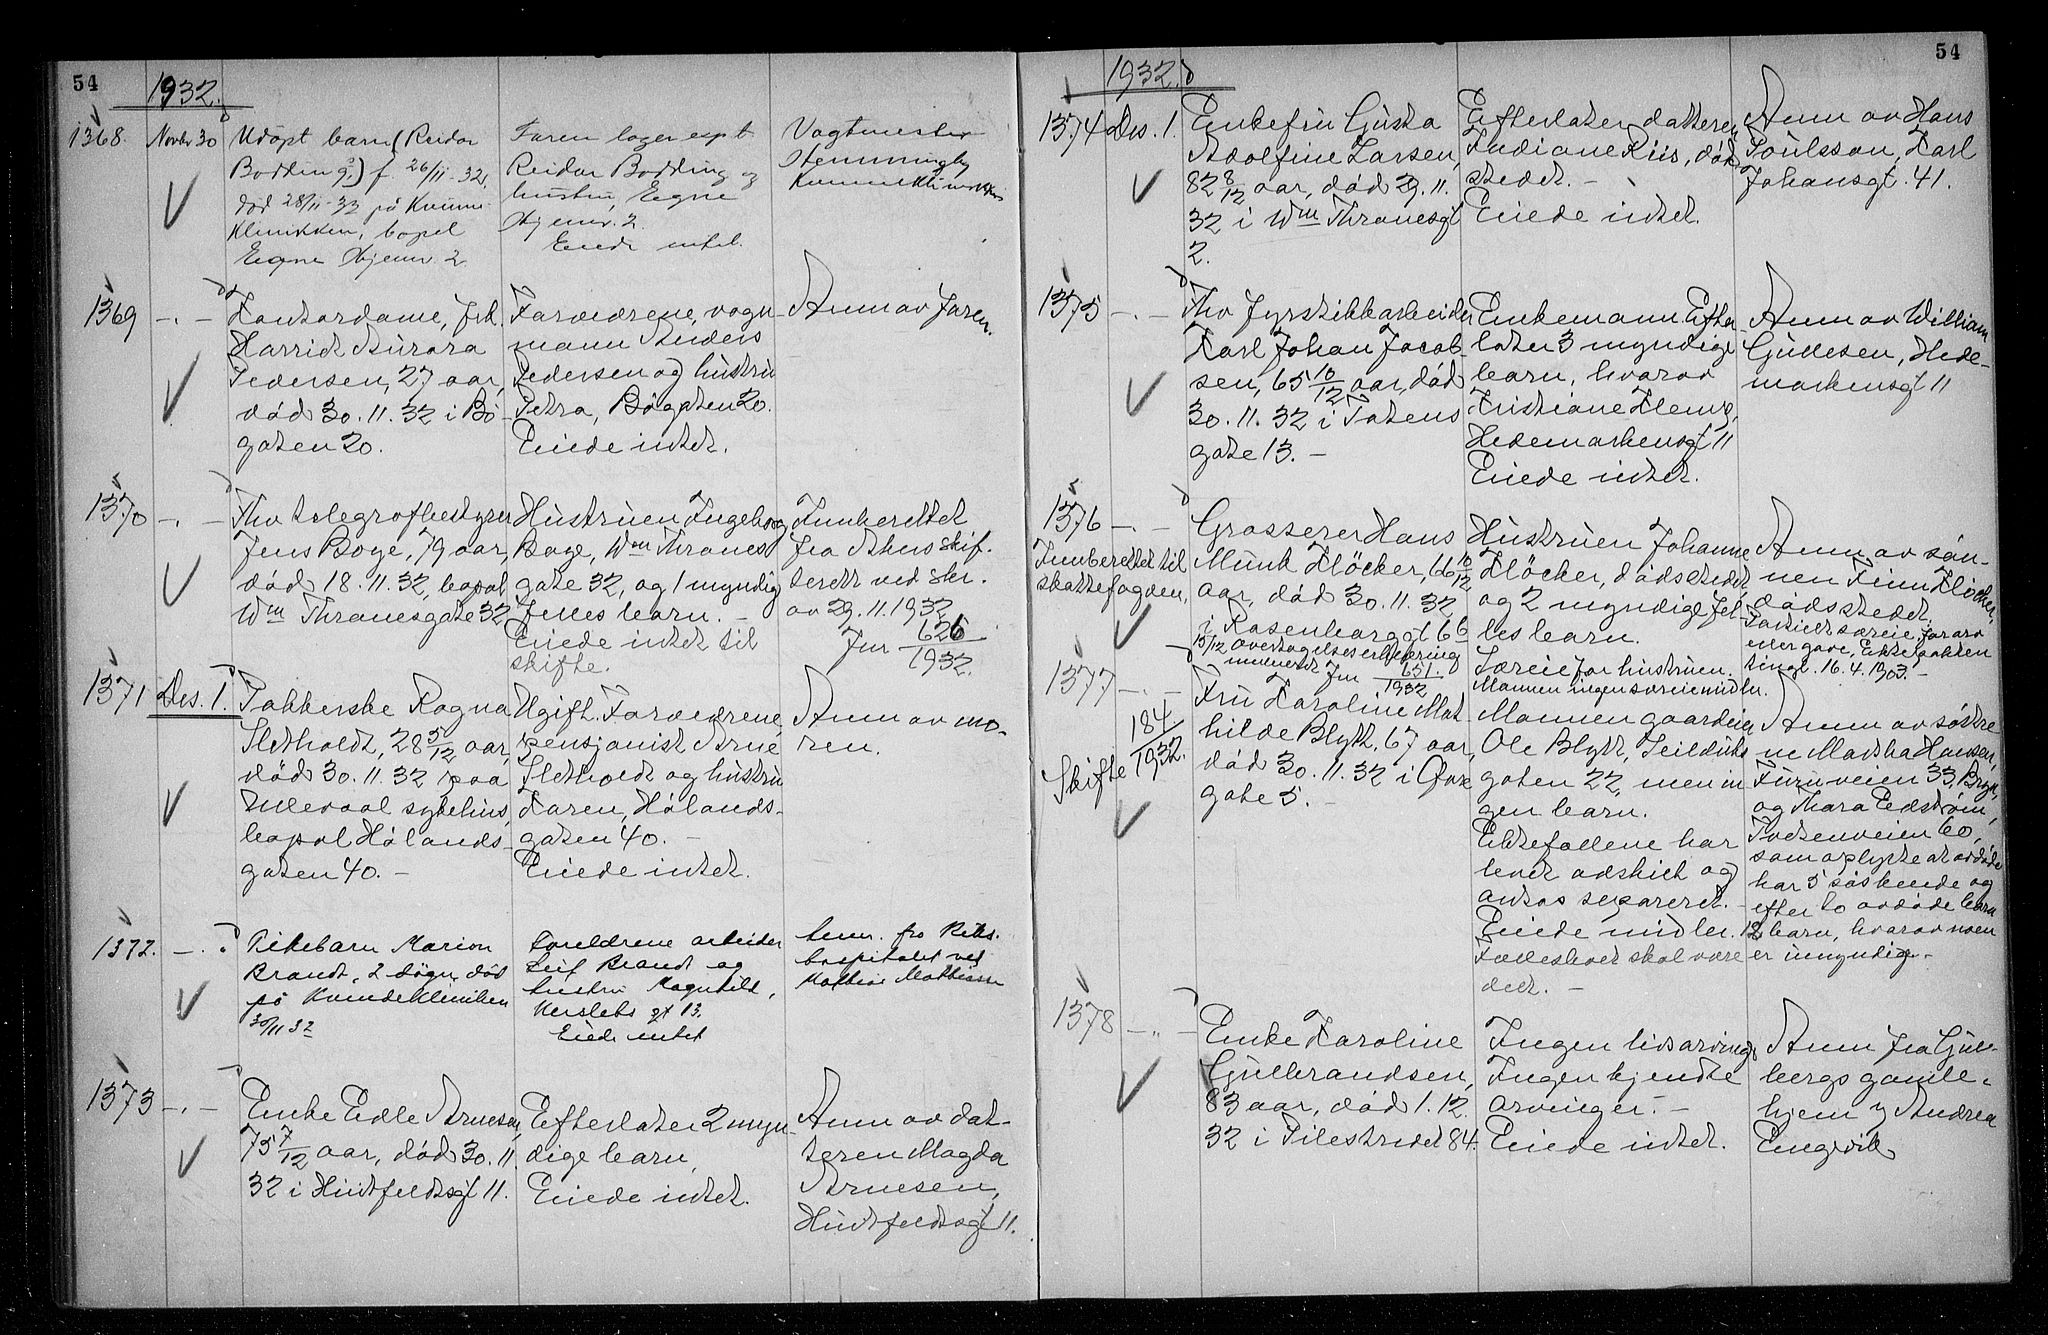 54
1932.
1368.
Novbr 30
Udöpt barn (Reidar
Bodding) f. 26/11-32,
död 28/11-32 på Kvinne
klinikken, bopel
Egne Hjemv. 2
Faren lagerexpt
Reidar Bodding og
hustru, Egne
Hjemv. 2.
Eiede intet.
Vagtmester
Hemmingby
Kvinneklinikken
1369
-.-
Kontordame, frk.
Harriet Aurora
Pedersen, 27 aar,
död 30.11.32 i Bö-
gaten 20.
Foreldrene, vogn-
mann Anders
Pedersen og hustru
Petra, Bögaten 20.
Eiede intet.
Anm av faren.
1370
-.-
Fhv telegrafbestyrer
Jens Boye, 79 aar,
död 18.11.32, bopel
Wm Thranesgate 32
Hustruen Ingeborg
Boye, Wm Thranes
gate 32, og 1 myndig
felles barn. -
Eiede intet til
skifte.
Innberettet
fra Akers skif-
terett ved skr.
av 29.11.1932
Jnr 626/1932.
1371
Des. 1.
Pakkerske Ragna
Sletholdt, 28 5/12 aar,
död 30.11.32 paa
Ullevaal sykehus,
bopel Hölands-
gaten 40. -
Ugift. Foreldrene,
pensjonist Arne
Sletholdt og hustru
Karen, Hölands-
gaten 40. -
Eiede intet.
Anm av mo-
ren.
1372.
-.
Pikebarn Marion
Brandt, 2 dögn, död
på Kvindekliniken
30/11 32
Foreldrene arbeider
Leif Brandt og
hustru Magnhild,
Herslebs gt 13.
Eiede intet
Anm. fra Riks-
hospitalet ved
Mathias Mathisen
1373
-.-
Enke Edle Arnesen,
75 7/12 aar, död 30.11.
32 i Huitfeldtsgt 11.
Efterlater 2 myn-
dige barn,
Eiede intet.
Anm av dat-
teren Magda
Arnesen,
Huitfeldtsgt 11.
54
1932.
1574
Des. 1.
Enkefru Gusta
Adolfine Larsen,
82 8/12 aar, död 29.11.
32 i Wm Thranesgt
2.
Efterlater datteren
Indiane Riis, död-
stedet. -
Eiede intet.
Anm av Hans
Poulsson, Karl
Johansgt. 41.
1375
-.-
Fhv fyrstikkarbeider
Karl Johan Jacob-
sen, 65 10/12 aar, död
30.11.32 i Totens
gate 13. -
Enkemann. Efter-
later 3 myndige
barn, hvorav
Kristiane Klemp,
Hedemarkensgt 11
Eiede intet.
Anm av William
Gullesen, Hede-
markensgt 11
1376
-.-
Innberettet til
skattefogden,
Grosserer Hans
Munk Klöcker, 66 10/12
aar, död 30.11.32
i Rosenborggt 66
15/12 overtagelseserklæring
mottatt Jnr 651./1932
Hustruen Johanne
Klöcker, dödsstedet,
og 2 myndige fel-
les barn.
Særeie for hustruen.
Mannen ingen særeiemidler.
Anm av sön-
nen Finn Klöcker,
dödsstedet.
Partielt særeie for arv
eller gave, Ektepakten
tingl. 16.4.1903. -
1377
-.-
Skifte 184/1932.
Fru Karoline Mat-
hilde Blytt, 67 aar,
död 30.11.32 i Qvæ
gate 5. -
Mannen gaardeier
Ole Blytt, Seilduks
gaten 22, men in
gen barn.
Ektefellene har
levet adskilt og
antas separeret. -
Eiede midler.
Fellesboet skal være
delt. -
Anm av söstre
ne Martha Hansen,
Furuveien 33, Bryn,
og Thora Edström,
Tvetenveien 60,
som oplyste at avdöde
har 5 söskende og
efter to avdöde barn
12 barn, hvorav noen
er umyndige. -
1378
-.-
Enke Karoline
Gulbrandsen,
83 aar, död 1.12.
32 i Pilestredet 84.
Ingen livsarvinge
Ingen kjendte
arvinger. -
Eiede intet.
Anm fra Gull-
bergs gamle-
hjem v Andrea
Engvik